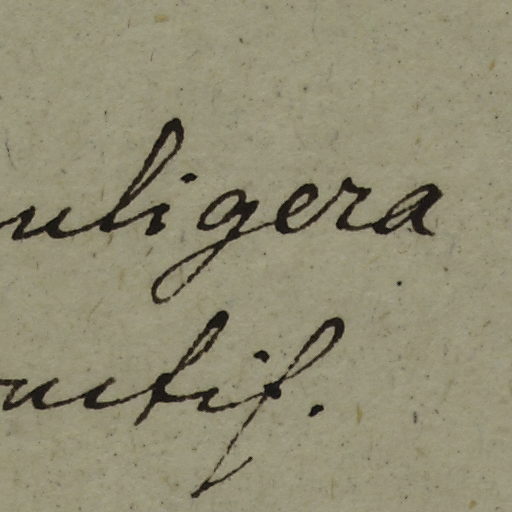 uligera
uctif.